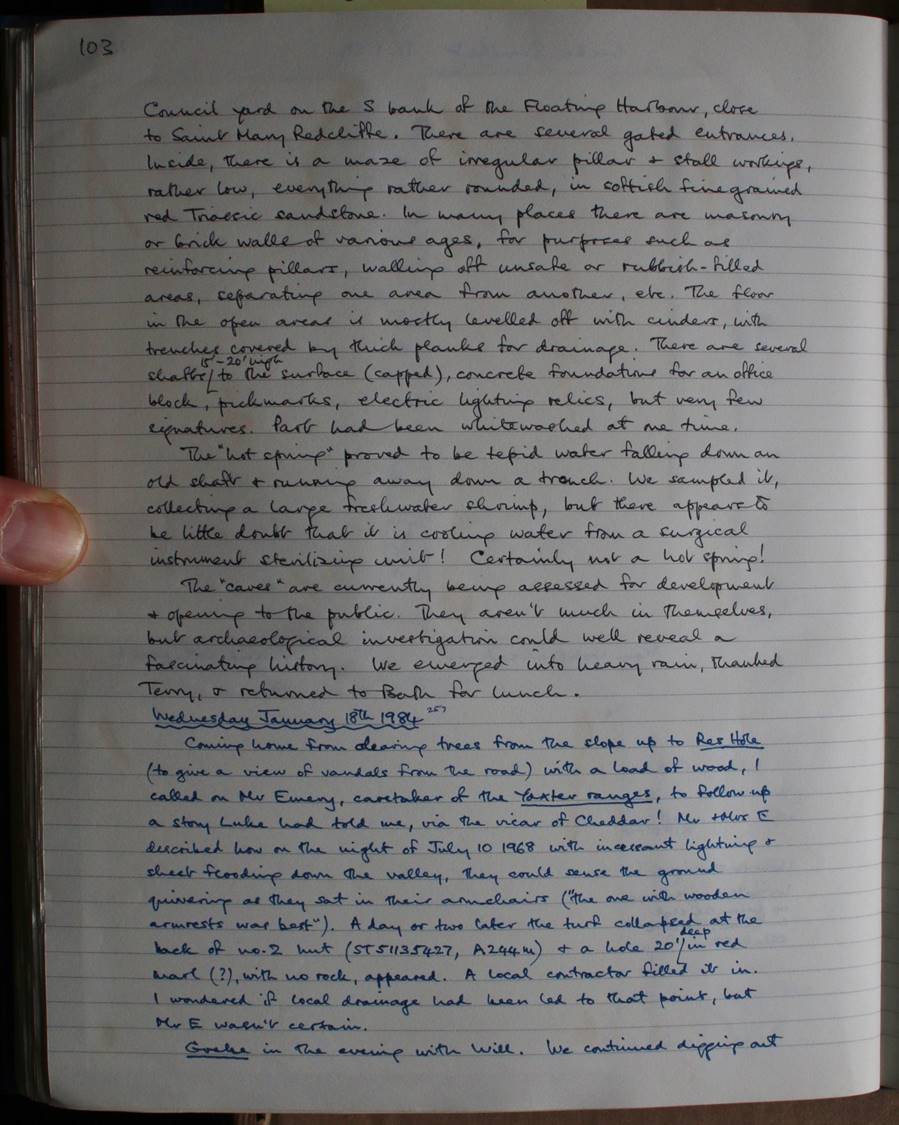 103
Council yard on the S bank of the Floating Harbour, close
to Saint Mary Redcliffe. There are several gated entrances.
Inside, there is a maze of irregular pillar + stall workings,
rather low, everything rather rounded, in softish finegrained
red Triassic sandstone. In many places there are masonry
or brick walls of various ages, for purposes such as
reinforcing pillars, walling off unsafe or rubbish-filled
areas, separating one area from another, etc. The floor
in the open areas is mostly levelled off with cinders, with
trenches covered by thick planks for drainage. There are several
15'-20' high
shafts to the surface (capped), concrete foundations for an office
block, pickmarks, electric lighting relics, but very few
signatures. Part had been whitewashed at one time.
The "hot spring" proved to be tepid water falling down an
old shaft + running away down a trench. We sampled it,
collecting a large freshwater shrimp, but there appears to
be little doubt that it is cooling water from a surgical
instrument sterilising unit! Certainly not a hot spring!
The "caves" are currently being assessed for development
+ opening to the public. They aren't much in themselves,
but archaeological investigation could well reveal a
fascinating history. We emerged into heavy rain, thanked
Terry, & returned to Bath for lunch.
Wednesday January 18th 1984 257
Coming home from clearing trees from the slope up to Res Hole
(to give a view of vandals from the road) with a load of wood, I
called on Mr Emery, caretaker of the Yoxter ranges, to follow up
a story Luke had told me, via the vicar of Cheddar! Mr + Mrs E
described how on the night of July 10 1968 with incessant lightning +
sheet flooding down the valley, they could sense the ground
quivering as they sat in their armchairs ("the one with wooden
armrests was best"). A day or two later the turf collapsed at the
deep
back of no.2 hut (ST51135427, A244m) + a hole 20' in red
marl (?), with no rock, appeared. A local contractor filled it in.
I wondered if local drainage had been led to that point, but
Mr E wasn't certain.
in the evening with Will. We continued digging out